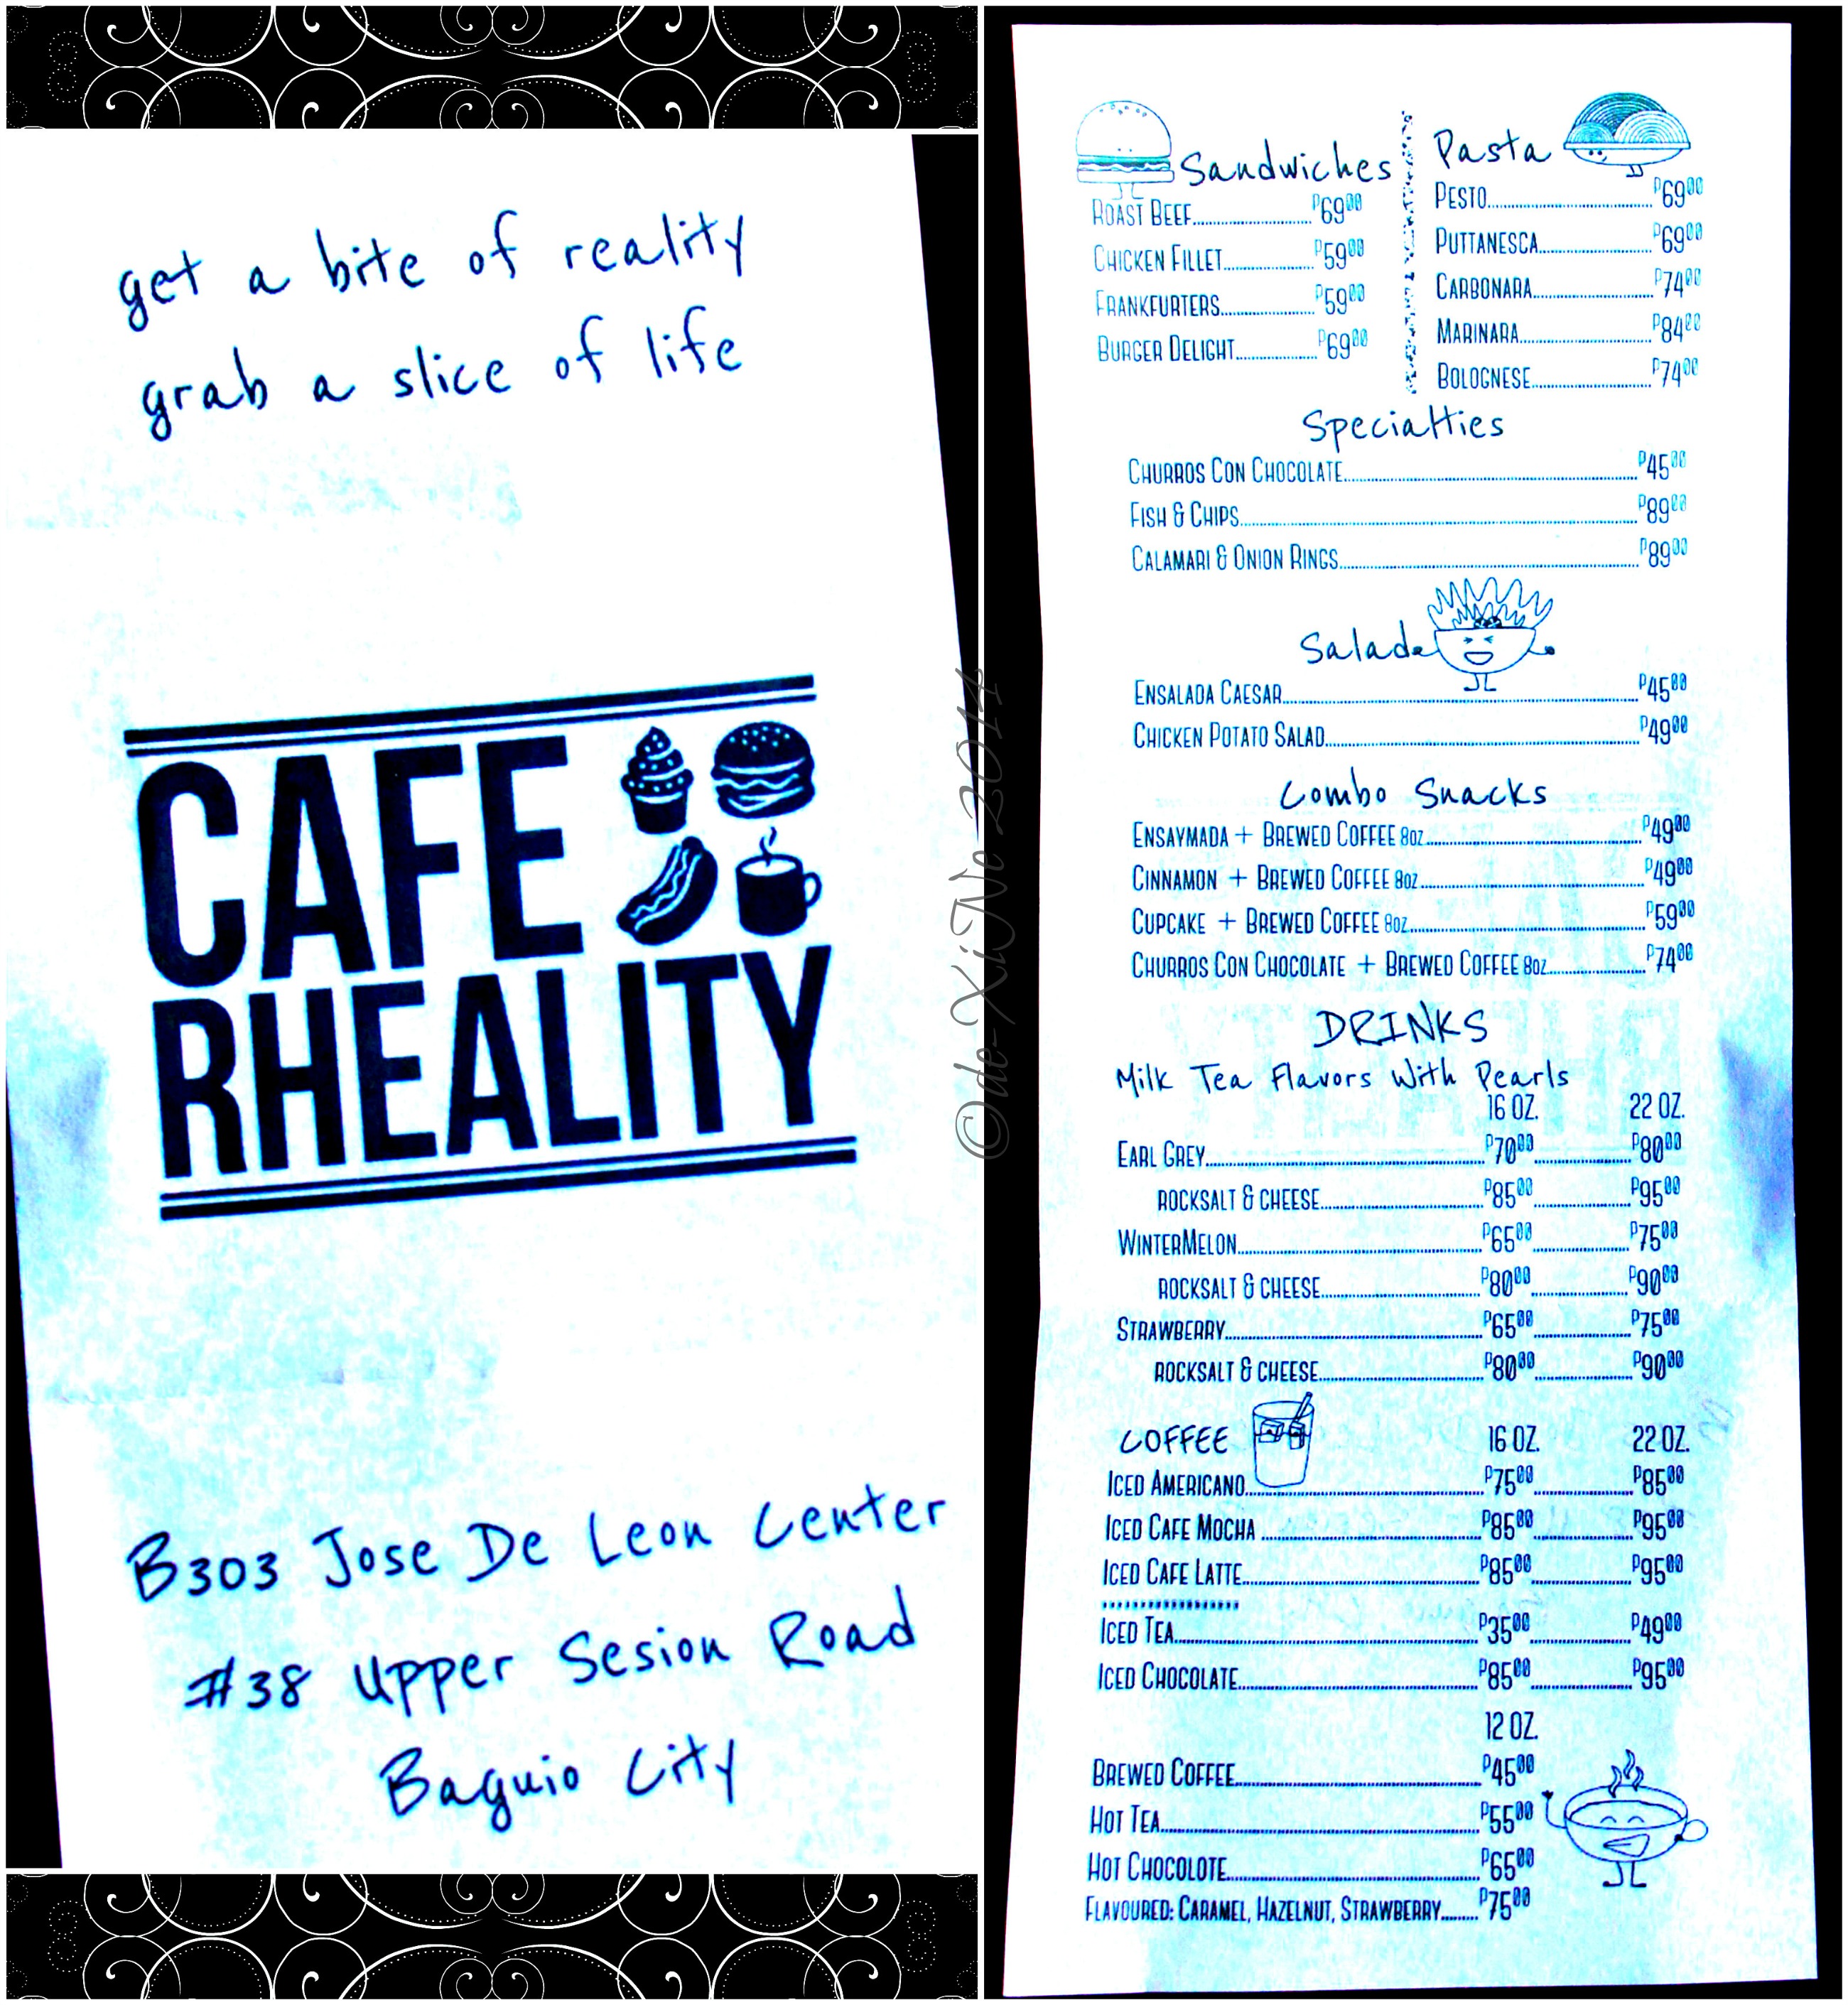 get a bite of reality
grab a slice of life
CAFE
RHEALITY
B303 Jose De Leon Center
#38 Upper Sesion Road
Baguio City
©de-XiNe 2014
Sandwiches
ROAST BEEF P69.00
CHICKEN FILLET P59.00
FRANKFURTERS P59.00
BURGER DELIGHT P69.00
Pasta
PESTO P69.00
PUTTANESCA P69.00
CARBONARA P74.00
MARINARA P84.00
BOLOGNESE P74.00
Specialties
CHURROS CON CHOCOLATE P45.00
FISH & CHIPS P89.00
CALAMARI & ONION RINGS P89.00
Salads
ENSALADA CAESAR P45.00
CHICKEN POTATO SALAD P49.00
Combo Snacks
ENSAYMADA + BREWED COFFEE 8OZ P49.00
CINNAMON + BREWED COFFEE 8OZ P49.00
CUPCAKE + BREWED COFFEE 8OZ P59.00
CHURROS CON CHOCOLATE + BREWED COFFEE 8OZ P74.00
DRINKS
Milk Tea Flavors With Pearls
16 OZ. 22 OZ.
EARL GREY P70.00 P80.00
ROCKSALT & CHEESE P85.00 P95.00
WINTERMELON P65.00 P75.00
ROCKSALT & CHEESE P80.00 P90.00
STRAWBERRY P65.00 P75.00
ROCKSALT & CHEESE P80.00 P90.00
COFFEE 16 OZ. 22 OZ.
ICED AMERICANO P75.00 P85.00
ICED CAFE MOCHA P85.00 P95.00
ICED CAFE LATTE P85.00 P95.00
ICED TEA P35.00 P49.00
ICED CHOCOLATE P85.00 P95.00
12 OZ.
BREWED COFFEE P45.00
HOT TEA P55.00
HOT CHOCOLOTE P65.00
FLAVOURED: CARAMEL, HAZELNUT, STRAWBERRY P75.00